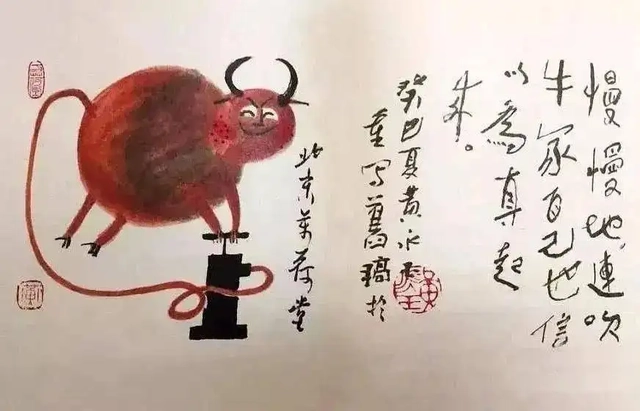 慢慢地，連吹
牛家自己也信
以為真起
来。
癸巳夏黄永玉
重寫舊稿於
北京万荷堂